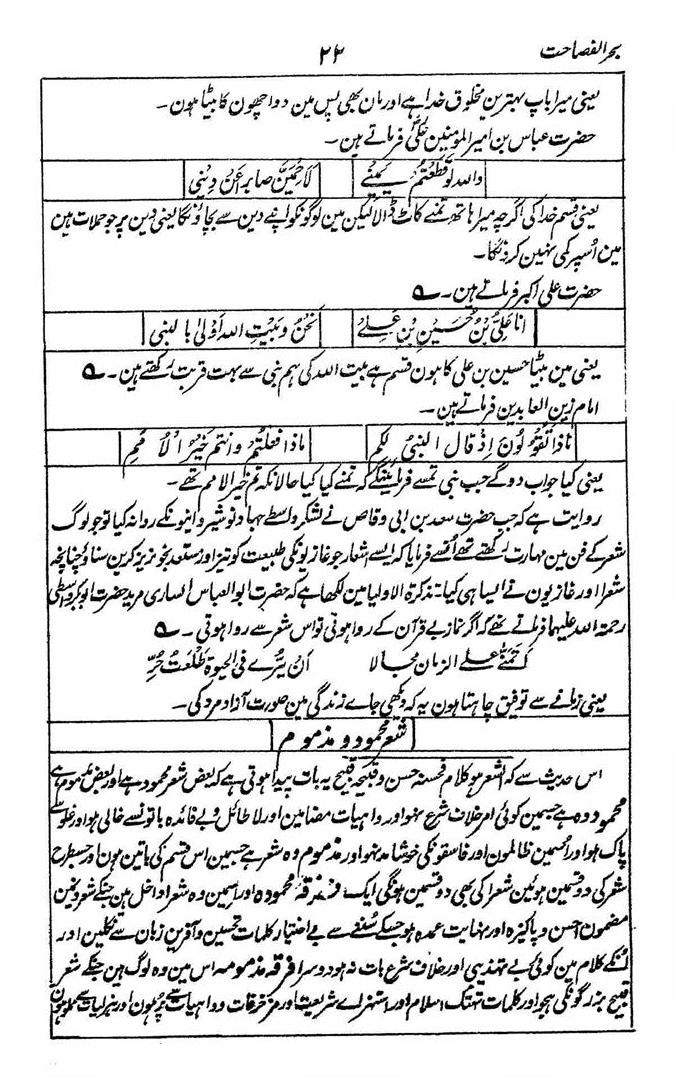 بحر الفصاحت
۲۲
یعنی میرا باپ بہترین مخلوق خدا ہے اور مان بھی پس مین دو اچھون کا بیٹا ہون۔
حضرت عباس بن امیر المومنین علیؓ فرماتے ہین۔
واللہ لو قطعتم یمینے لاحمین صابراً عن دینی
یعنی قسم خدا کی اگرچہ میرا ہاتھ تمنے کاٹ ڈالا لیکن مین لوگونکو اپنے دین سے بچاؤنگا یعنی دین پر جو حملات ہین
مین اُسپر کمی نہین کرونگا۔
حضرت علی اکبر فرماتے ہین۔ ؎
انا علیُّ بنُ حسینِ بنِ علے نحنُ و بیتِ اللہ اَولیٰ بالنبی
یعنی مین بیٹا حسین بن علی کا ہون قسم ہے بیت اللہ کی ہم نبی سے بہت قربت رکھتے ہین۔ ؎
امام زین العابدین فرماتے ہین۔
ماذا تقولون اِذ قال النبیُ لکم ماذا فعلتُم وانتم خیرُ الاُممِ
یعنی کیا جواب دوگے جب نبی تمسے فرماینگے کہ تمنے کیا کیا حالانکہ تم خیر الامم تھے۔
روایت ہے کہ جب حضرت سعد بن ابی وقاص نے لشکر واسطے جہاد نوشیروانیونکے روانہ کیا تو جو لوگ
شعر کے فن مین مہارت رکھتے تھے اُنسے فرمایا کہ ایسے اشعار جو غازیونکی طبیعت کو تیز اور مستعد بخونریز کرین سناؤ چنانچہ
شعرا اور غازیون نے ایسا ہی کیا۔ تذکرۃ الاولیا مین لکھا ہے کہ حضرت ابو العباس السیاری مرید حضرت ابوبکر واسطی
رحمۃ اللہ علیہما فرماتے تھے کہ اگر نماز بے قرآن کے روا ہوتی تو اس شعر سے روا ہوتی۔ ؎
اتمنّٰے علے الزمان محالا ان یُرے فی الحیوۃ طلعت حُرِّ
یعنی زمانے سے توفیق چاہتا ہون یہ کہ دکھی جاے زندگی مین صورت آزاد مرد کی۔
شعر محمود و مذموم
اس حدیث سے کہ الشعر ہو کلام فحسنہ حسن و قبیحہ قبیح یہ بات پیدا ہوتی ہے کہ بعض شعر محمود ہے اور بعض مذموم ہے
محمود وہ ہے جسمین کوئی امر خلاف شرع نہو اور واہیات مضامین اور لا طائل و بے فائدہ باتونسے خالی ہو اور غلو سے
پاک ہو اور اُسمین ظالمون اور فاسقونکی خوشامد نہو اور مذموم وہ شعر ہے جسمین اس قسم کی باتین ہون اور جسطرح
شعر کی دو قسمین ہوئین شعرا کی بھی دو قسمین ہونگی ایک فرقۂ محمودہ اور اسمین وہ شعرا داخل ہین جنکے شعر و نین
مضمون احسن و پاکیزہ اور نہایت عمدہ ہو جسکے سننے سے بے اختیار کلمات تحسین و آفرین زبان سے نکلین اور
اُنکے کلام مین کوئی بے تہذیبی اور خلاف شرع بات نہ ہو دوسرا فرقہ مذمومہ اس مین وہ لوگ ہین جنکے شعر
قبیح بزرگونکی ہجو اور کلمات تہتک اسلام اور استہزاے شریعت اور مزخرفات و واہیات سے پُر ہون اور ہزلیات سے مملو ہون